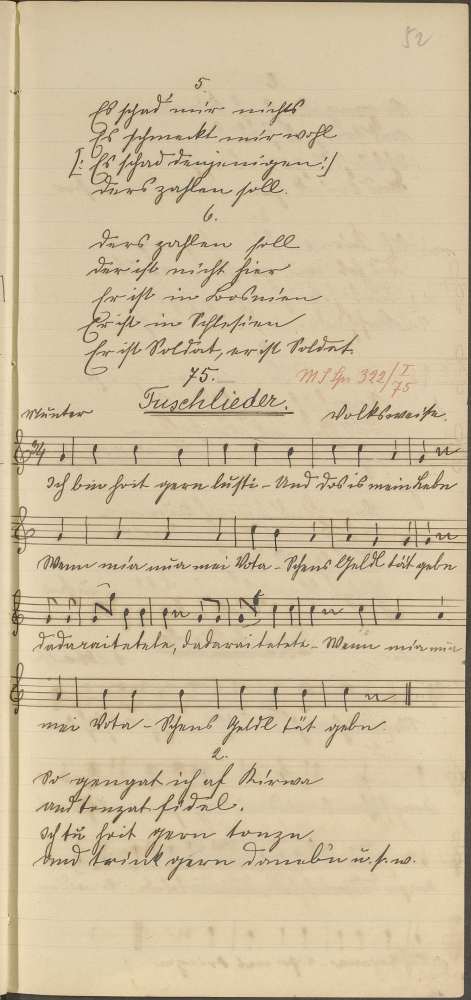 52
5.
Es schad' mir nichts
Es schmeckt mir wohl
[: Es schad denjenigen :]
Ders zahlen soll.
6.
Ders zahlen soll
der ist nicht hier
Er ist in Bosnien
Er ist in Schlesien
Er ist Soldat, er ist Soldat.
75. M S Sp. 322/I 75
Tuschlieder.
Munter Volksweise.
3/4
Ich bin heit gern lusti - Und dos is mein Lebn
Wenn mia nua mei Vota - Schens Geldl tät gebn
dadaraitetete, dadaraitetete - Wenn mia nua
mei Vota - Schens Geldl tät gebn.
2.
So gengat ich af Kirwa
und tonzat fidel.
Ich tu heit gern tonzn
Und trink gern danebn u. s. w.